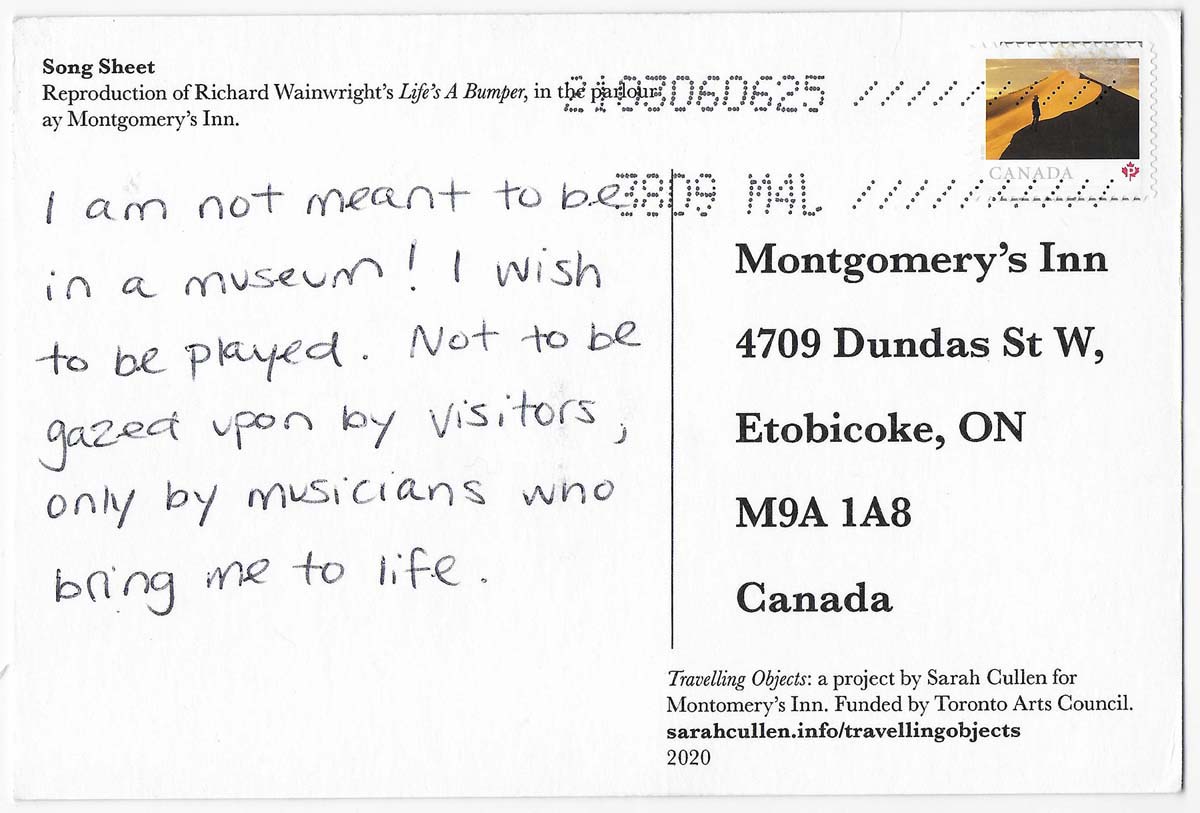 Song Sheet
Reproduction of Richard Wainwright's Life's A Bumper, in the parlour
ay Montgomery's Inn.
2193060625
3809 MAL
CANADA
P
I am not meant to be
in a museum! I wish
to be played. Not to be
gazed upon by visitors,
only by musicians who
bring me to life.
Montgomery's Inn
4709 Dundas St W,
Etobicoke, ON
M9A 1A8
Canada
Travelling Objects: a project by Sarah Cullen for
Montomery's Inn. Funded by Toronto Arts Council.
sarahcullen.info/travellingobjects
2020